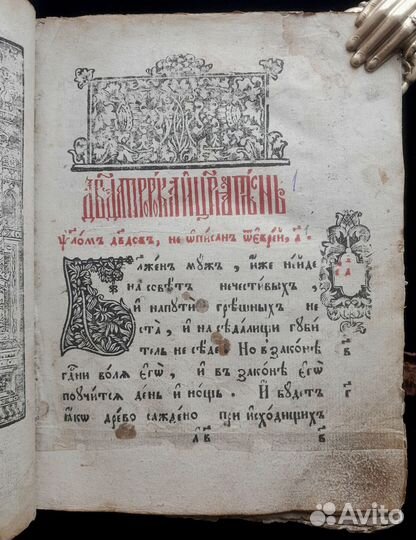 Дв҃да прⷪ҇рка и҆ цр҃ѧ пѣснь
ѱаломъ дв҃довъ, не ѡ҆писан ѿ є҆врей, а҃.
Блаженъ мужъ, и҆же нейде
на совѣтъ нечестивыхъ,
и҆ на пути грѣшныхъ не
ста, и҆ на сѣдалищи губи
тель не сѣде. Но в законѣ
гд҇ни волѧ є҆гѡ̀, и҆ в законѣ є҆гѡ̀
поучитсѧ день и҆ нощь. И҆ будетъ
ꙗ҆кѡ древо саждено при исходищихъ
в҃
г҃
лв
в
Avito